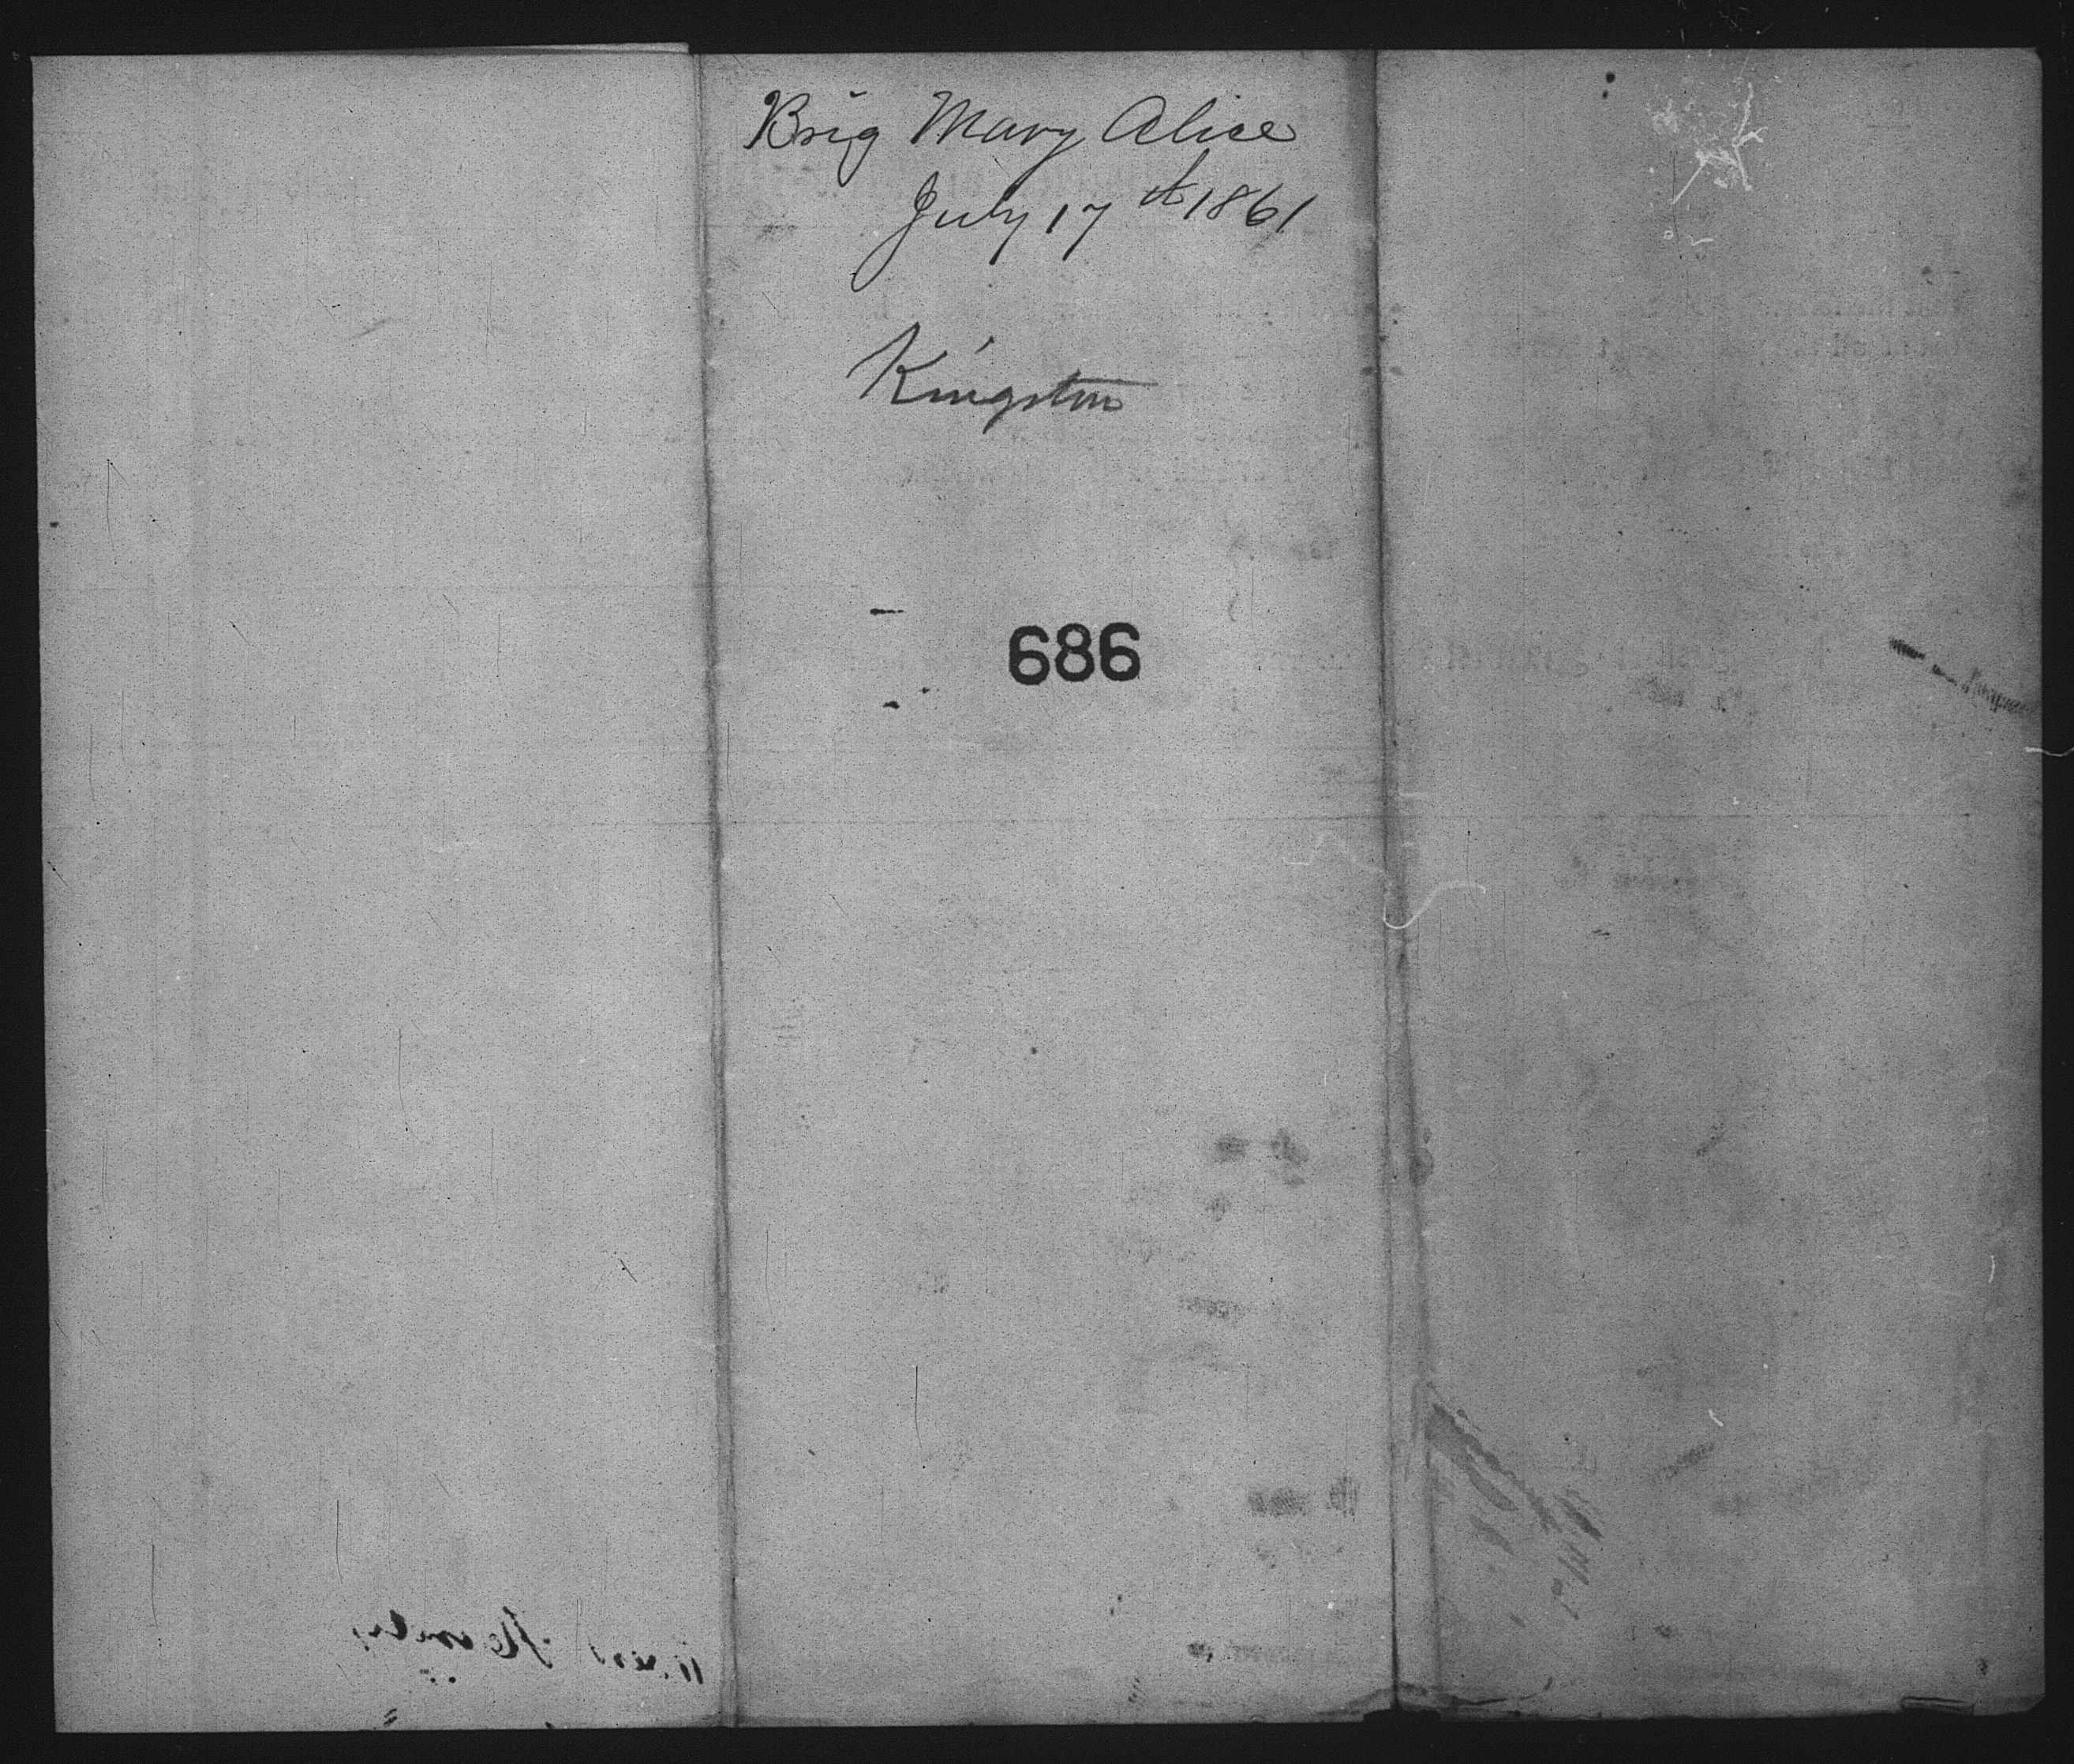 Brig Mary Alice
July 17th 1861
Kingston
686